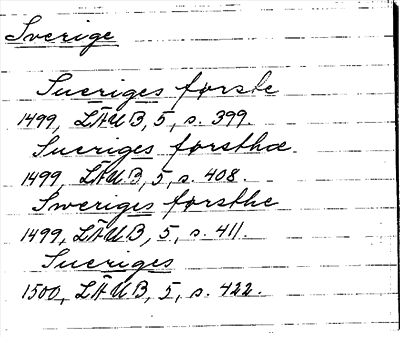 Sverige
Sueriges første
1499, LÄUB, 5, s. 399.
Sueriges forsthæ
1499, LÄUB, 5, s. 408.
Sweriges forsthe
1499, LÄUB, 5, s. 411.
Sueriges
1500, LÄUB, 5, s. 422.